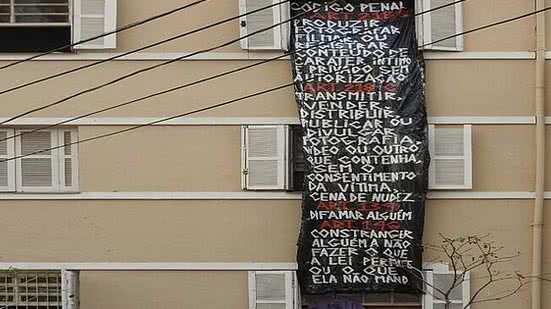 CÓDIGO PENAL
ART 216 B
PRODUZIR
FOTOGRAFAR
FILMAR OU
REGISTRAR
CONTEÚDO DE
CARÁTER ÍNTIMO
E PRIVADO SEM
AUTORIZAÇÃO
ART. 218 C
TRANSMITIR,
VENDER,
DISTRIBUIR
PUBLICAR OU
DIVULGAR
FOTOGRAFIA
VÍDEO OU OUTRO
QUE CONTENHA,
SEM O
CONSENTIMENTO
DA VÍTIMA,
CENA DE NUDEZ
ART 139
DIFAMAR ALGUÉM
ART 146
CONSTRANGER
ALGUÉM A NÃO
FAZER O QUE
A LEI PERMITE
OU O QUE
ELA NÃO MAND